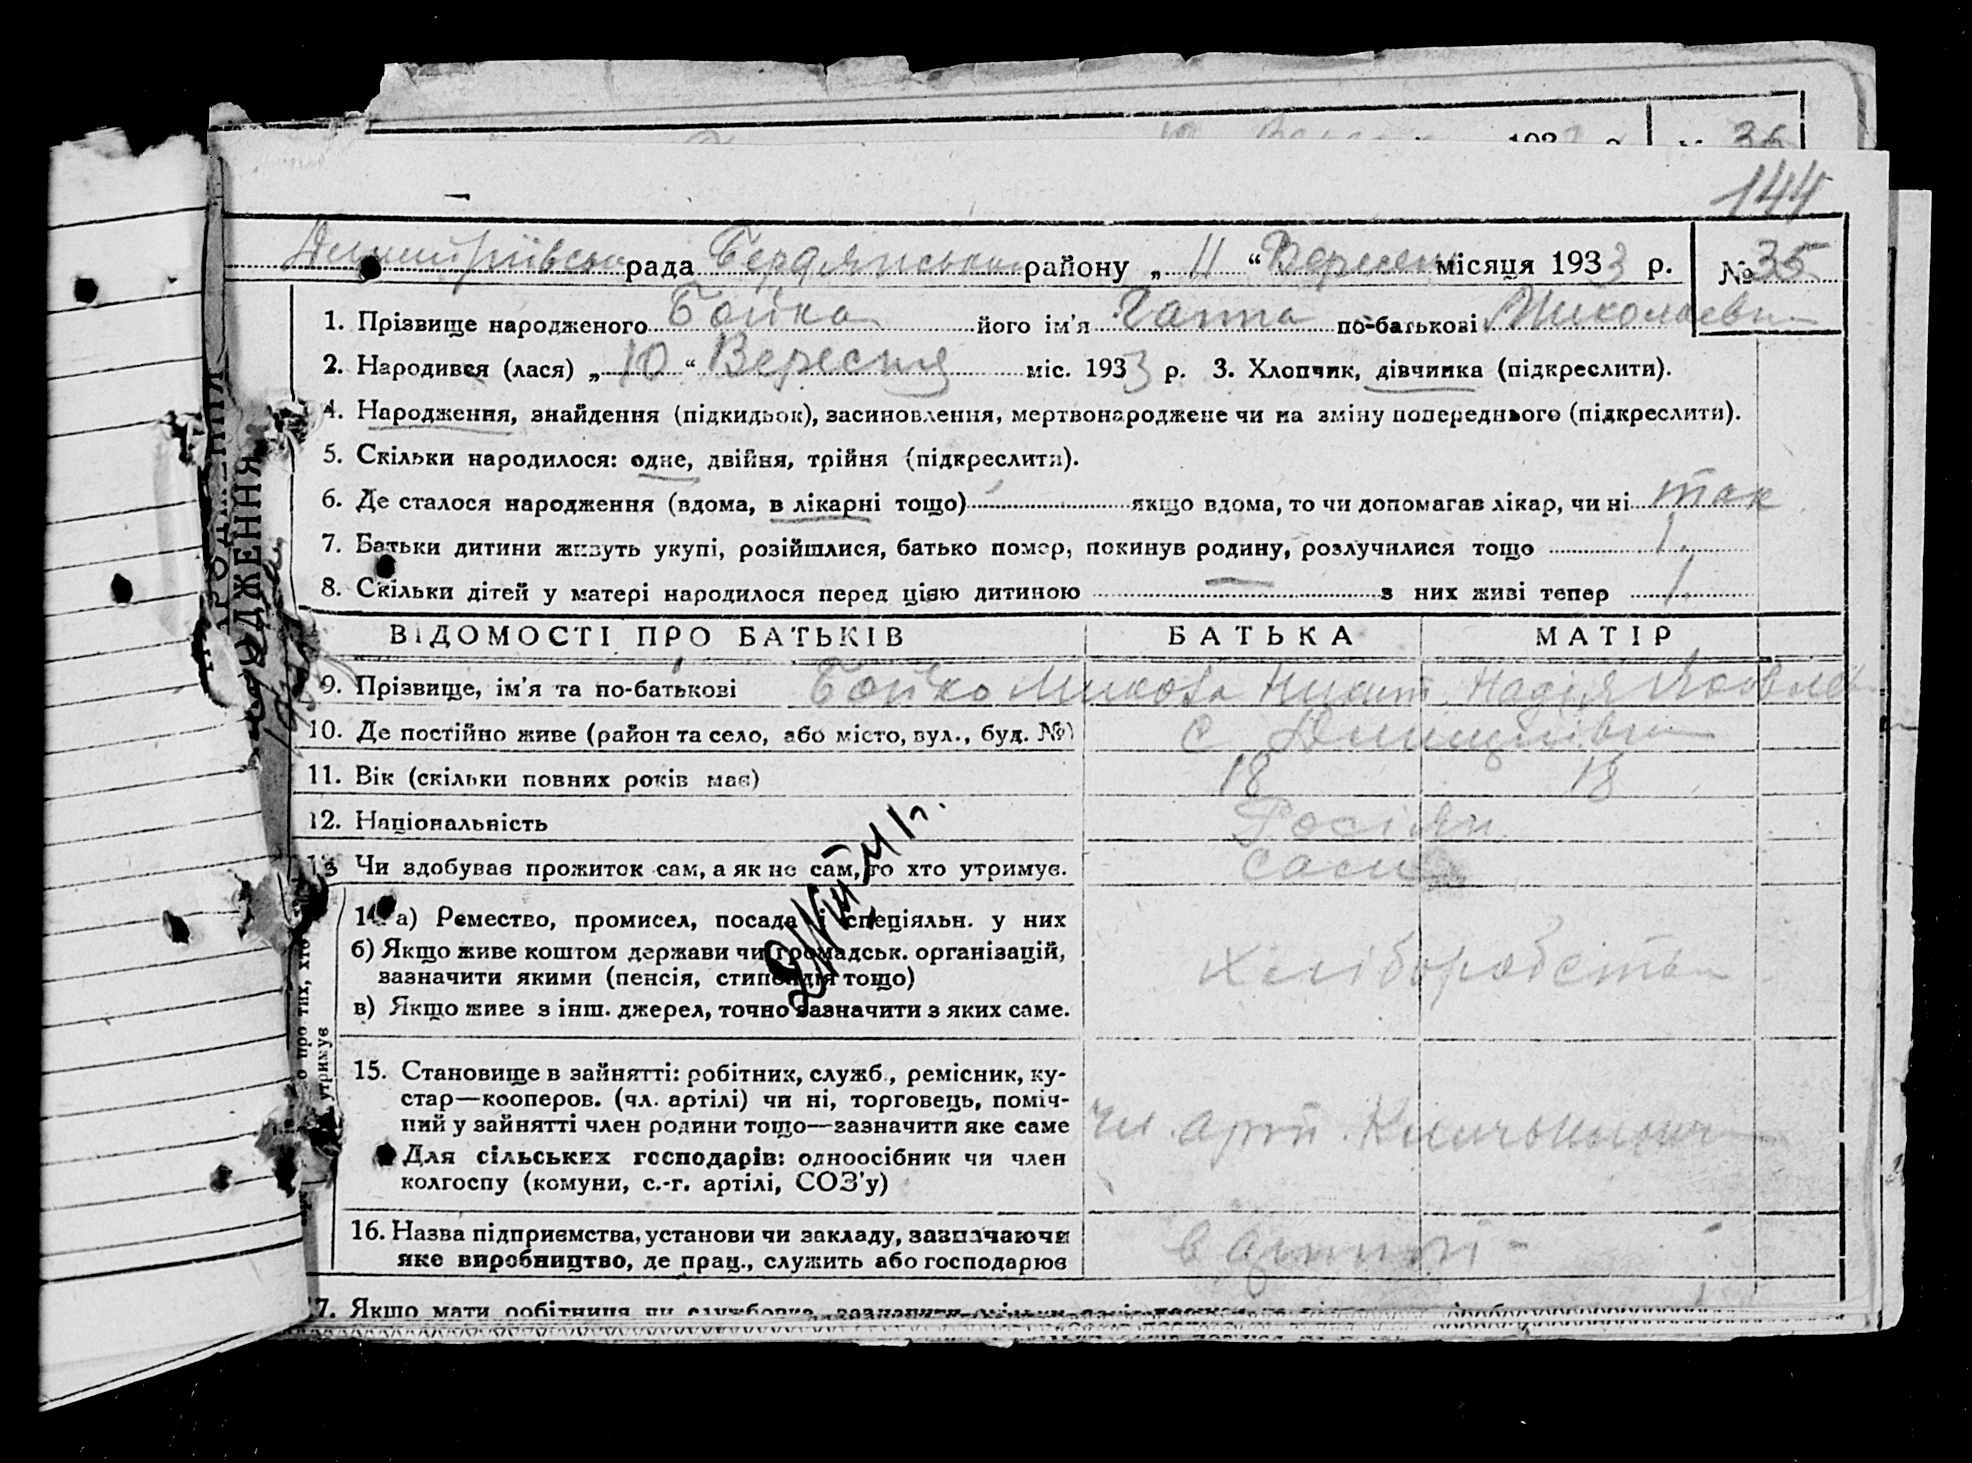 36
144
Дмитрівська рада Бердянського району „ 11 “ Вересня місяця 1933 р. № 35
1. Прізвище народженого Бойко його ім'я Ганна по-батькові Миколаєвна
2. Народився (лася) „ 10 “ Вересня міс. 1933 р. 3. Хлопчик, дівчинка (підкреслити).
4. Народження, знайдення (підкидьок), засиновлення, мертвонароджене чи на зміну попереднього (підкреслити).
5. Скільки народилося: одне, двійня, трійня (підкреслити).
6. Де сталося народження (вдома, в лікарні тощо) якщо вдома, то чи допомагав лікар, чи ні так
7. Батьки дитини живуть укупі, розійшлися, батько помер, покинув родину, розлучилися тощо 1.
8. Скільки дітей у матері народилося перед цією дитиною — з них живі тепер 1.
ВІДОМОСТІ ПРО БАТЬКІВ БАТЬКА МАТІР
9. Прізвище, ім'я та по-батькові Бойко Микола Надія
10. Де постійно живе (район та село, або місто, вул., буд. №) с
11. Вік (скільки повних років має) 18 18
12. Національність Росіян
13 Чи здобуває прожиток сам, а як не сам, то хто утримує. сами
14 а) Ремество, промисел, посада і спеціяльн. у них
б) Якщо живе коштом держави чи громадськ. організацій,
зазначити якими (пенсія, стипендія тощо)
в) Якщо живе з інш. джерел, точно зазначити з яких саме.
хліборобство
15. Становище в зайнятті: робітник, служб., ремісник, ку-
стар—кооперов. (чл. артілі) чи ні, торговець, поміч-
ний у зайнятті член родини тощо—зазначити яке саме
Для сільських господарів: одноосібник чи член
колгоспу (комуни, с.-г. артілі, СОЗ'у)
чл. арт.
16. Назва підприємства, установи чи закладу, зазначаючи
яке виробництво, де прац., служить або господарює
в артілі
17. Якщо мати робітниця чи службовка,